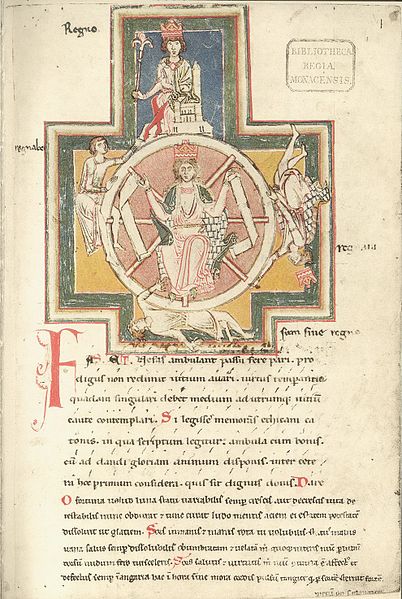 Regno
1
BIBLIOTHECA
REGIA
MONACENSIS.
regnabo
sum sine regno
FAS ET Nefas ambulant passu fere pari. pro
digus non redimit vitium avari. virtus temperantia
quadam singulari debet medium ad utrumque vitium
caute contemplari. Si legisse memoras ethicam ca
tonis. in qua scriptum legitur; ambula cum bonis.
cum ad dandi gloriam animum disponis. inter cete
ra hec primum considera. quis sit dignus donis. Dare
O fortuna velud luna statu variabilis semper crescis aut decrescis vita de
testabilis nunc obdurat et tunc curat ludo mentis aciem egestatem potestatem
dissolvit ut glaciem. Sors immanis et inanis rota tu volubilis status malus
vana salus semper dissolubilis obumbratam et velatam
dorsum nudum fero tui sceleris. Sors salutis et virtutis
defectus semper in angaria hac in hora sine mora corde pulsum tangite